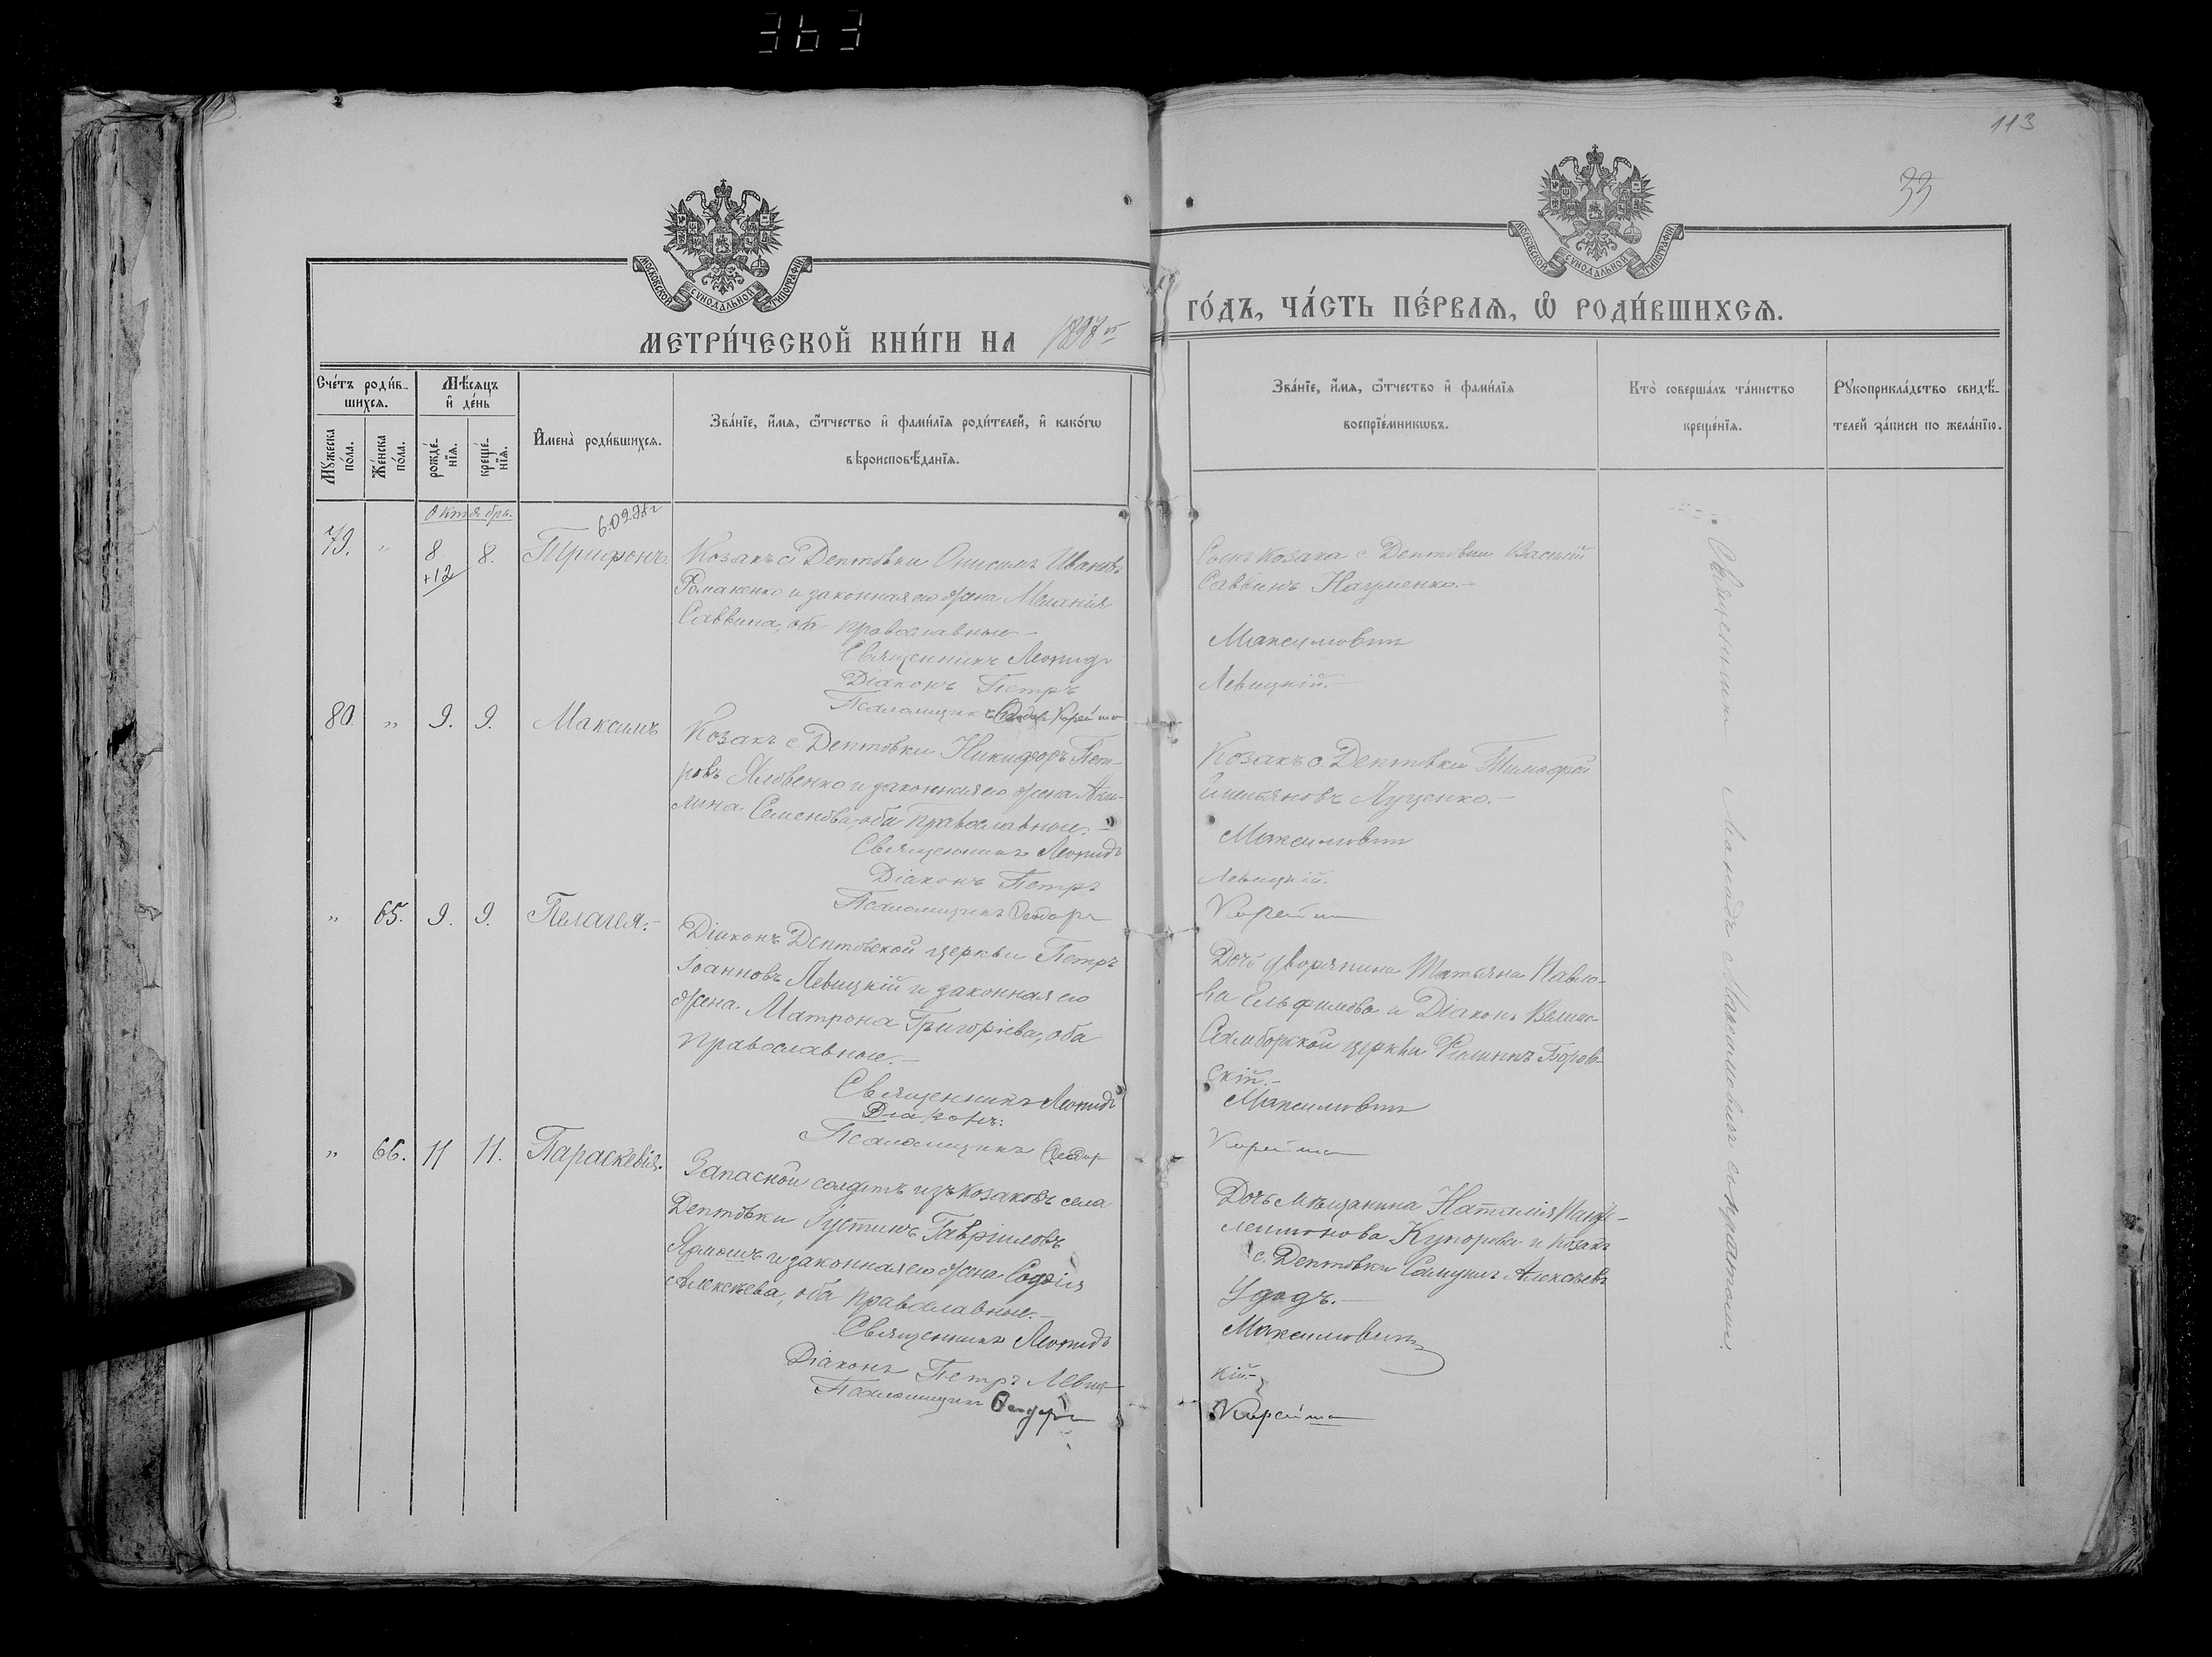 363
113
33
МОСКОВСКОЙ СѴНОДАЛЬНОЙ ТИПОГРАФІИ
МОСКОВСКОЙ СѴНОДАЛЬНОЙ ТИПОГРАФІИ
МЕТРИ́ЧЕСКОЙ КНИ́ГИ НА 1897й
ГО́ДЪ, ЧА́СТЬ ПЕ́РВАѦ, Ѽ РОДИ́ВШИХСѦ.
Сче́тъ роди́вшихсѧ.
Мꙋ́жеска по́ла.
Же́нска по́ла.
Мѣ́сѧцъ и҆ де́нь
рожде́нїѧ.
креще́нїѧ.
И҆мена̀ роди́вшихсѧ.
Зва́нїе, и҆́мѧ, ѻ҆́тчество и҆ фами́лїѧ роди́телей, и҆ како́гѡ
вѣроисповѣ́данїѧ.
Зва́нїе, и҆́мѧ, ѻ҆́тчество и҆ фами́лїѧ
воспрїе́мникѡвъ.
Кто̀ соверша́лъ та́инство
креще́нїѧ.
Рꙋкоприкла́дство свидѣ́-
телей за́писи по жела́нїю.
Октябрь.
79. " 8 8. Трифонъ.
+12
Козакъ с. Дептовки Онисимъ Ивановъ
Романенко и законная его жена Меланія
Саввина, оба православные.-
Священникъ Леонидъ
Діаконъ Петръ
Псаломщикъ Ѳеодоръ Корейша
Сынъ козака с. Дептовки Василій
Саввинъ Науменко.-
Максимовичъ
Левицкій.-
80. " 9. 9. Максимъ
Козакъ с. Дептовки Никифоръ Пет-
ровъ Яловенко и законная его жена Аки-
лина Семенова, оба православные.-
Священникъ Леонидъ
Діаконъ Петръ
Псаломщикъ Ѳеодоръ
Козакъ с. Дептовки Тимофей
Емельяновъ Луценко.-
Максимовичъ
Левицкій.
Корейша
" 65. 9. 9. Пелагея.-
Діаконъ Дептовской церкви Петръ
Іоанновъ Левицкій и законная его
жена Матрона Григоріева, оба
православные.-
Священникъ Леонидъ
Діаконъ:
Псаломщикъ Ѳеодоръ
Дочь дворянина Татьяна Павло-
ва и Діаконъ Велико-
Самборской церкви Филиппъ Боров-
скій.-
Максимовичъ
Корейша
" 66. 11 11. Параскевія.
Запасной солдатъ изъ козаковъ села
Дептовки Іустинъ Гавріиловъ
Ярмошъ и законная его жена Софія
Алексѣева, оба православные.-
Священникъ Леонидъ
Діаконъ Петръ Левиц-
Псаломщикъ Ѳеодоръ
Дочь мѣщанина Наталія
и козакъ
с. Дептовки Самуилъ Алексѣевъ
Удодъ.-
Максимовичъ
кій.-
Корейша
Священникъ Леонидъ Максимовичъ